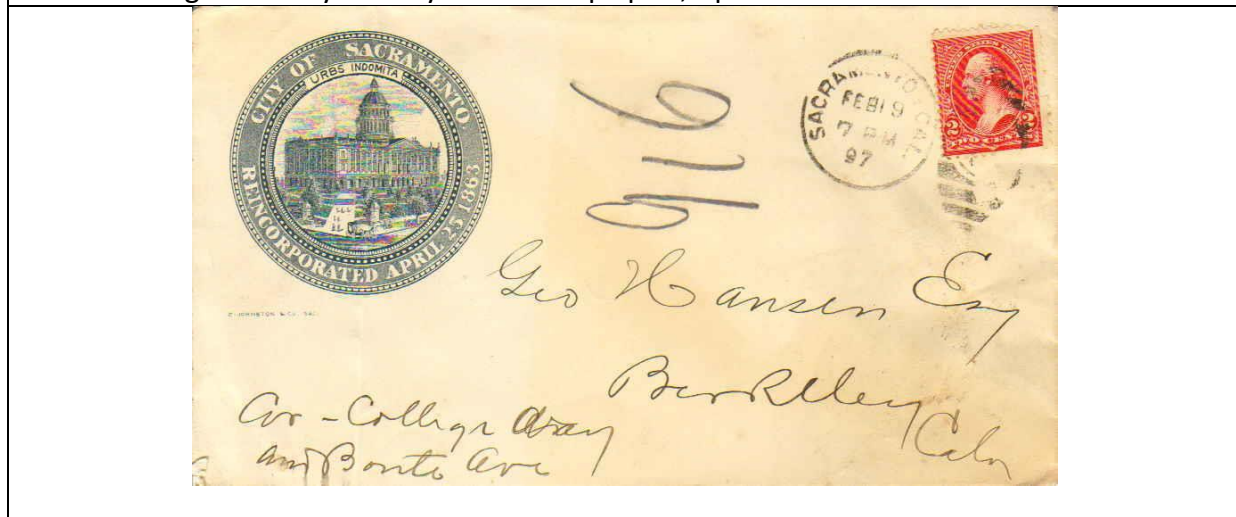 CITY OF SACRAMENTO
URBS INDOMITA
REINCORPORATED APRIL 25 1863
916
SACRAMENTO, CAL.
FEB 19
7 PM
97
2 2
TWO CENTS
Geo Hansen Esq
Berkeley
Caln
Cor - College Way
and Bonte Ave